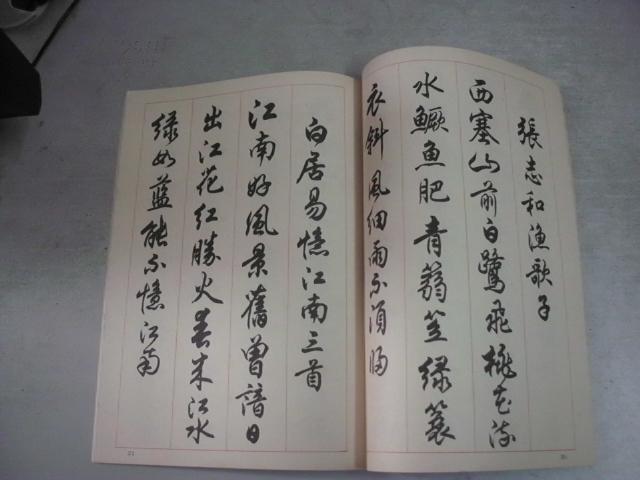 張志和漁歌子
西塞山前白鷺飛桃花流
水鱖魚肥青蒻笠綠蓑
衣斜風細雨不須歸
白居易憶江南三首
江南好風景舊曾諳日
出江花紅勝火春來江水
綠如藍能不憶江南